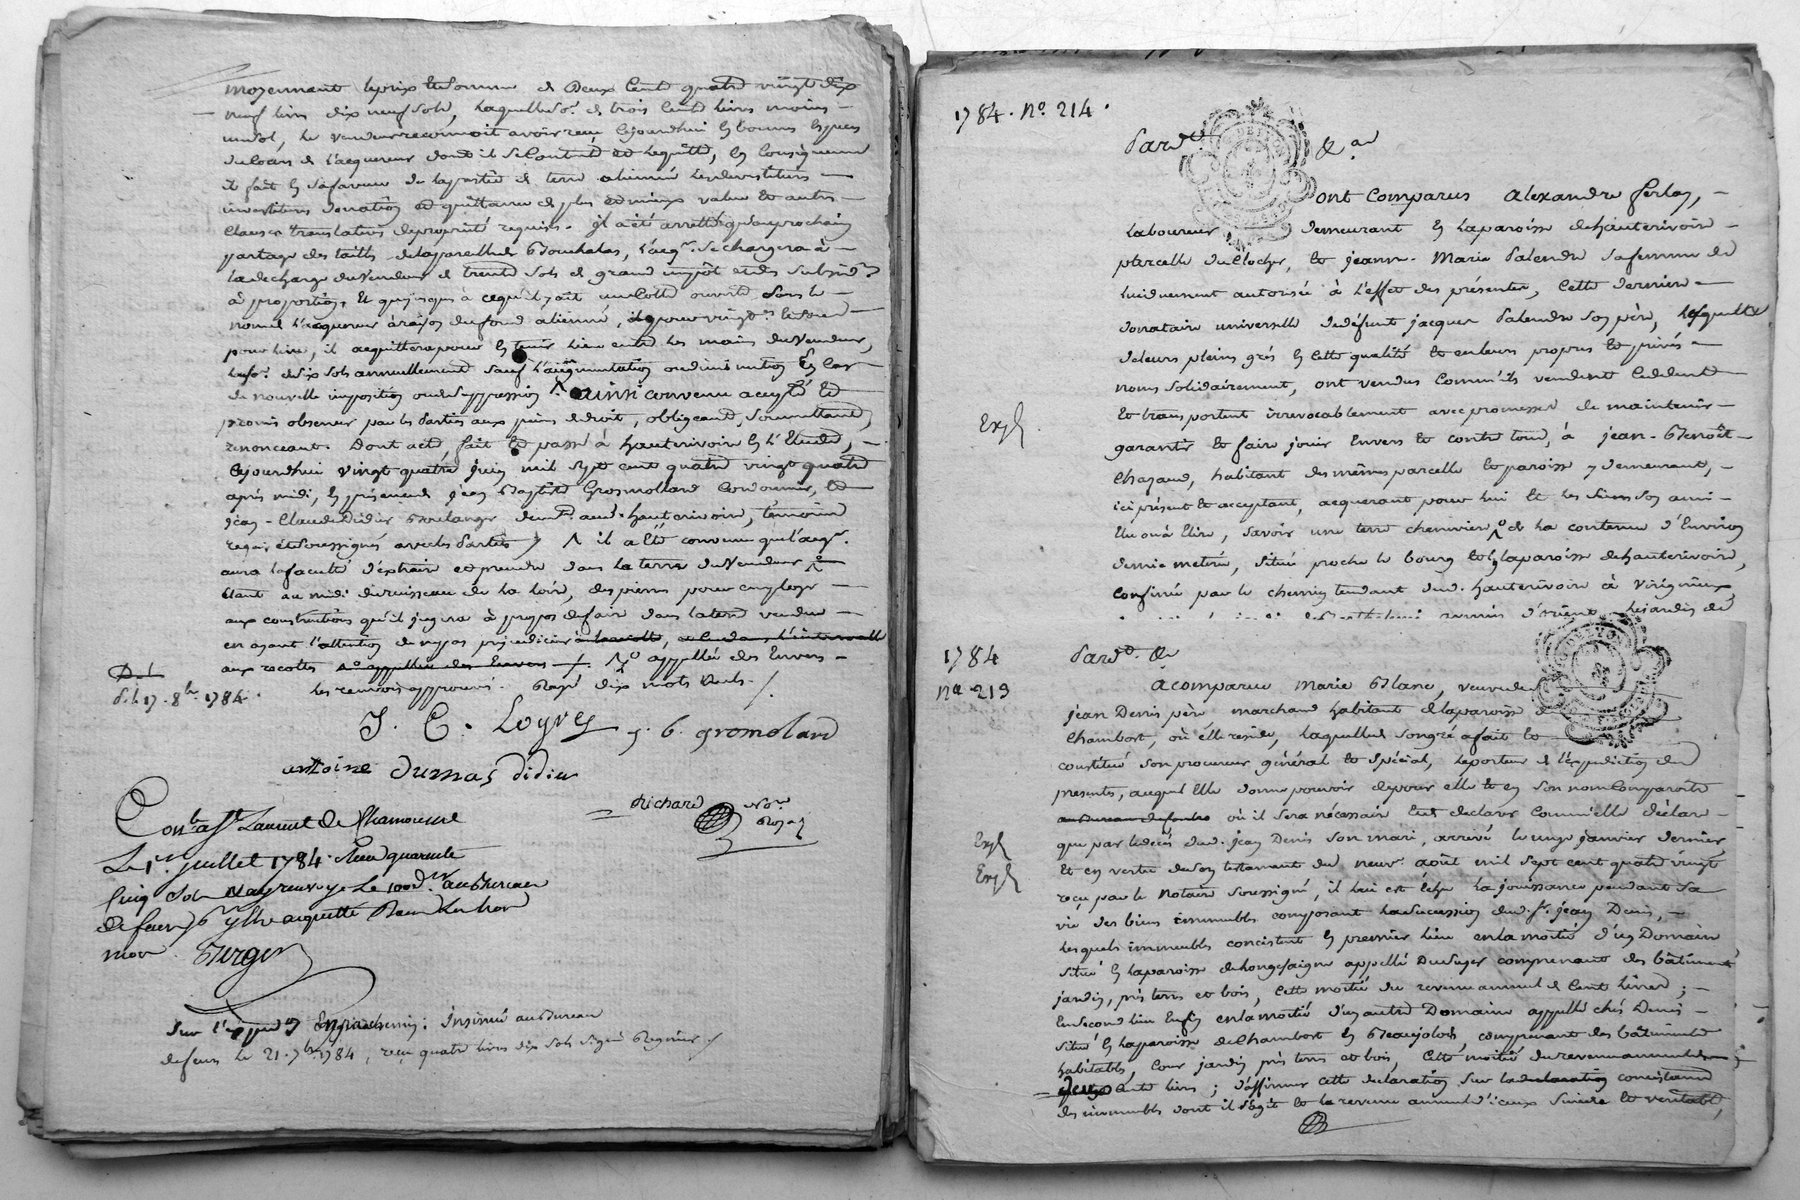 moyennant le prix et somme de Deux Cent quatre vingt dix
neuf livres dix neuf sols, laquelle so.e de trois cent livres moins
un sol, le vendeur reconnoit avoir reçu cejourdhui en bonnes especes
du cours de l'acquereur dont il se Contente et le quitte, en Consequence
il fait en sa faveur de la partie de terre alienée les devestitures
investitures donation et quittance de plus et mieux value et autres
Clauses translatives de propriété requises. il a été arretté qu'au prochain
partage des tailles de la parcelle de l'acqr. se chargera à
la decharge du vendeur de trente sols de grand impôt et des subsides
à proportion, Et jusques à ce qu'il y ait une Cotte ouverte sous le
nom de l'acquereur à raison du fond aliené,
pour livre, il acquittera pour en tenir lieu entre les mains du Vendeur,
six sols annuellement sauf l'augmentation ou diminution En Cas
de nouvelle imposition ou de suppression ainsi convenu accepté et
promis observer par les Parties aux peines de droit, obligeant, soumettant,
renonceant. Dont acte, fait et passé à hauterivoire en l'Etude,
cejourdhui vingt quatre juin mil sept cent quatre vingt quatre
après midi, en présence de jean Baptiste Grosmollard Cordonnier, et
jean-Claude Didier Boulanger demt. aud. hauterivoire, témoins
requis et soussignés avec les Parties il a été convenu que l'acqr.
aura la faculté d'extraire et prendre dans la terre du Vendeur
étant au midi du ruisseau de la loire, des pierres pour employer
aux constructions qu'il jugera à propos de faire dans la terre vendue
en ayant l'attention de ne pas préjudicier
aux recoltes appellée des Envers
les renvois approuvés. Rayé dix mots nuls.
D. l. 17. 8.bre 1784.
J. C. Loyves j. b. gromolard
antoine Dumas didier
Richard No.re Royal
Con.lé a St Laurent de Chamousset
Le 1er juillet 1784. Recu quarante
Cinq sols Renvoyé le 100.d.r au Bureau
de feurs
Berger
Sur l'expedon. En parchemin: insinué au Bureau
de feurs le 21. 7bre 1784, reçu quatre livres dix sols signé Regnier
1784. No. 214.
Pardt. &a
ont Comparus Alexandre ferlay,
Laboureur demeurant en la paroisse de hauterivoire
parcelle du Clocher, et jeanne-Marie Palendre sa femme de
lui duement autorisée à l'effet des présentes, Cette derniere
donataire universelle de defunt jacques Palendre son père, lesquels
de leurs pleins grés en cette qualité et en leurs propres et privés
noms solidairement, ont vendus Comm'ils vendent Ceddent
Et transportent irrevocablement avec promesses de maintenir
Exp.
garantir et faire jouir Envers et contre tous, à jean-Benoît
Chazaud, habitant des mêmes parcelle et paroisse y demeurant,
ici présent et acceptant, acquerant pour lui et les siens son ami
Elu ou à Elire, savoir une terre chenevier de la contenue d'Environ
demie meterée, située proche le bourg et en la paroisse de hauterivoire,
Confinée par le chemin tendant dud. hauterivoire à Virigneux
1784
No. 219
Pardt. &a
A comparue Marie Blanc, veuve de
jean Denis père marchand habitant de la paroisse de
Chambost, où elle reside, laquelle de son gré a fait et
constitué son procureur général et spécial, le porteur de l'Expedition des
presentes, auquel Elle donne pouvoir de pour elle et en son nom Comparoitre
au Bureau de où il sera nécessaire Et declarer Comm'elle déclare
Exp.
que par le decès dud. jean Denis son mari, arrivé le onze janvier dernier
Exp.
Et en vertu de son testament du neuf août mil sept cent quatre vingt
reçu par le Notaire soussigné, il lui est échu la jouissance pendant sa
vie des biens immeubles composant la succession dud. sr. jean Denis,
lesquels immeubles consistent en premier lieu en la moitié d'un Domaine
situé en la paroisse de longessaigne appellé Dusuger comprenant des bâtiments
jardin, prés terres et bois, Cette moitié du revenu annuel de Cent livres;
En second lieu Enfin en la moitié d'un autre Domaine appellé chés Denis
situé en la paroisse de Chambost en Beaujolois, comprenant des bâtiments
habitables, Cour jardin prés terres et bois, Cette moitié du revenu annuel de
deux cents livres; d'affirmer cette declaration sur la declaration consistance
des immeubles dont il s'agit et le revenu annuel d'iceux sincere et veritable,